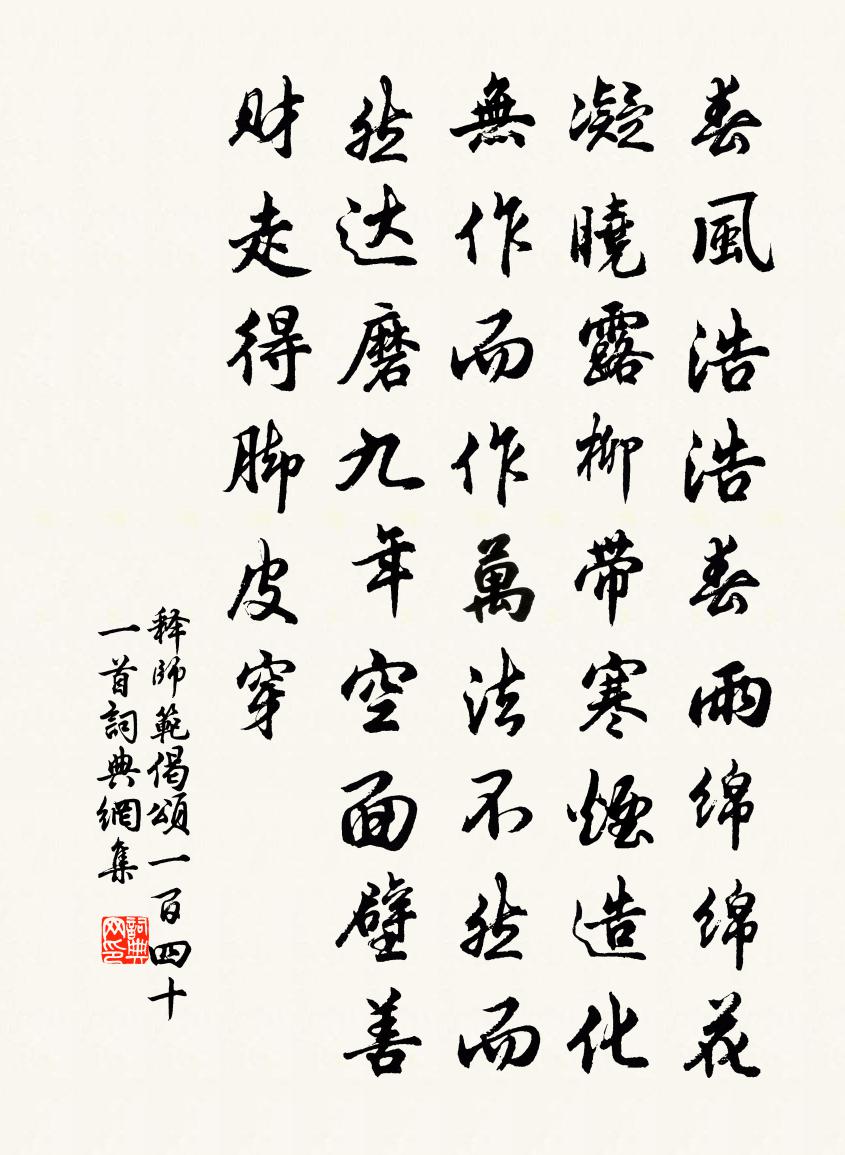 春風浩浩春雨綿綿花
凝曉露柳带寒煙造化
無作而作萬法不然而
然达磨九年空面壁善
财走得脚皮穿
释師範偈頌一百四十
一首詞典網集
詞典网印